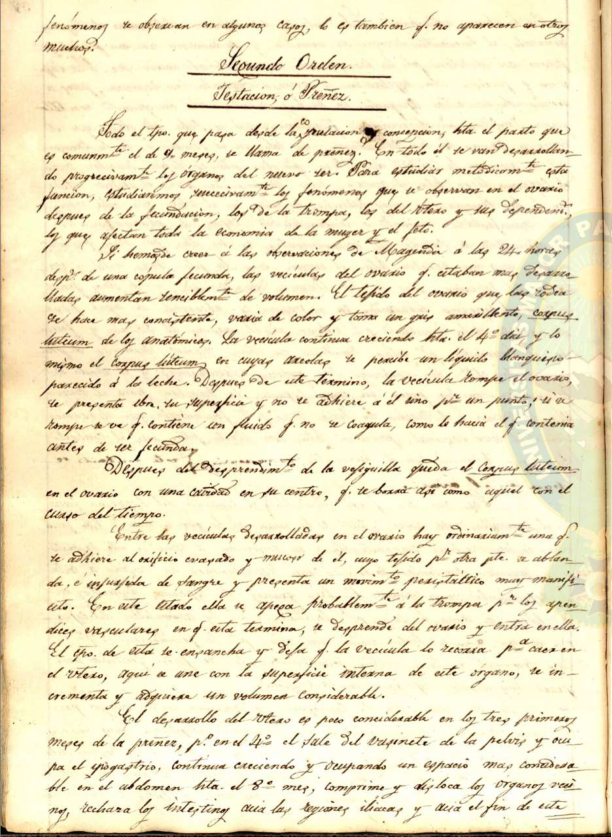 fenómenos se observan en algunos casos, lo es tambien q. no aparecen en otros
muchos.
Segundo Orden.
Jestacion, ó Preñez.
Todo el tpo. que pasa desde la copulacion y consepcion, hta. el parto que
es comunmte. el de 9. meses, se llama de preñez. En todo él se van desarrollan
do progrecivamte. los órganos del nuevo ser. Para estudiar metodicamte. esta
funcion, estudiaremos succcivamte. los fenómenos que se observan en el ovario
despues de la fecundacion, los de la trompa, los del Utero y sus dependens.
los que afectan toda la economia de la muger y el feto.
Si hemos de creer á las observaciones de Magendia á las 24. horas
desps. de una copula fecunda, las vecículas del ovario q. estaban mas desarro
lladas aumentan senciblemte. de volumen. El tejido del ovario que las rodea
se hace mas concistente, varia de color y toma un gris amarillento, corpus
luteum de los anatómicos. La vecicula continua creciendo hta. el 4º. dia, y lo
mismo el corpus luteum, en cuyas areolas se percibe un líquido blanquiso
parecido á la leche. Despues de este termino, la vecícula rompe el ovario,
se presenta sbre. su superficie y no se adhiere á él sino pr. un punto, si se
rompe se ve q. contiene un fluido q. no se coagula, como lo hacia el q. contenia
antes de ser fecunda.
Despues del desprendimto. de la vejiguilla queda el corpus luteum
en el ovario con una cavidad en su centro, q. se borra asi como aquel con el
curso del tiempo.
Entre las vecículas desarrolladas en el ovario hay ordinariamte. una q.
se adhiere al orificio evasado y mucoso de él, cuyo tejido pr. otra pte. se ablan
da, é inyecta de sangre y presenta un movimto. peristáltico muy manifi
esto. En este estado ella se apega probablemte. á la trompa pr. los apen
dices vasculares en q. esta termina, se desprende del ovario y entra en ella.
El tpo. de esta se ensancha y deja q. la vecícula lo recorra pa. caer en
el Utero, aqui se une con la superficie interna de este organo, se in-
crementa y adquiere un volumen considerable.
El desarrollo del Utero es poco considerable en los tres primeros
meses de la preñez, po. en el 4º. el sale del vasinete de la pelvis y ocu
pa el ipogastrio, continua creciendo y ocupando un espacio mas considera
ble en el abdomen hta. el 8º. mes, comprime y disloca los organos veci
nos, rechaza los intestinos acia las regiones iliacas y acia el fin de este